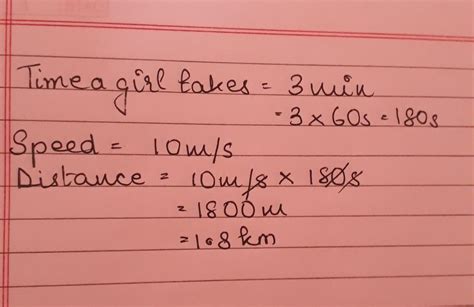 Time a girl takes = 3 min
= 3 x 60s = 180s
Speed = 10m/s
Distance = 10m/s x 180s
= 1800m
= 1.8 km